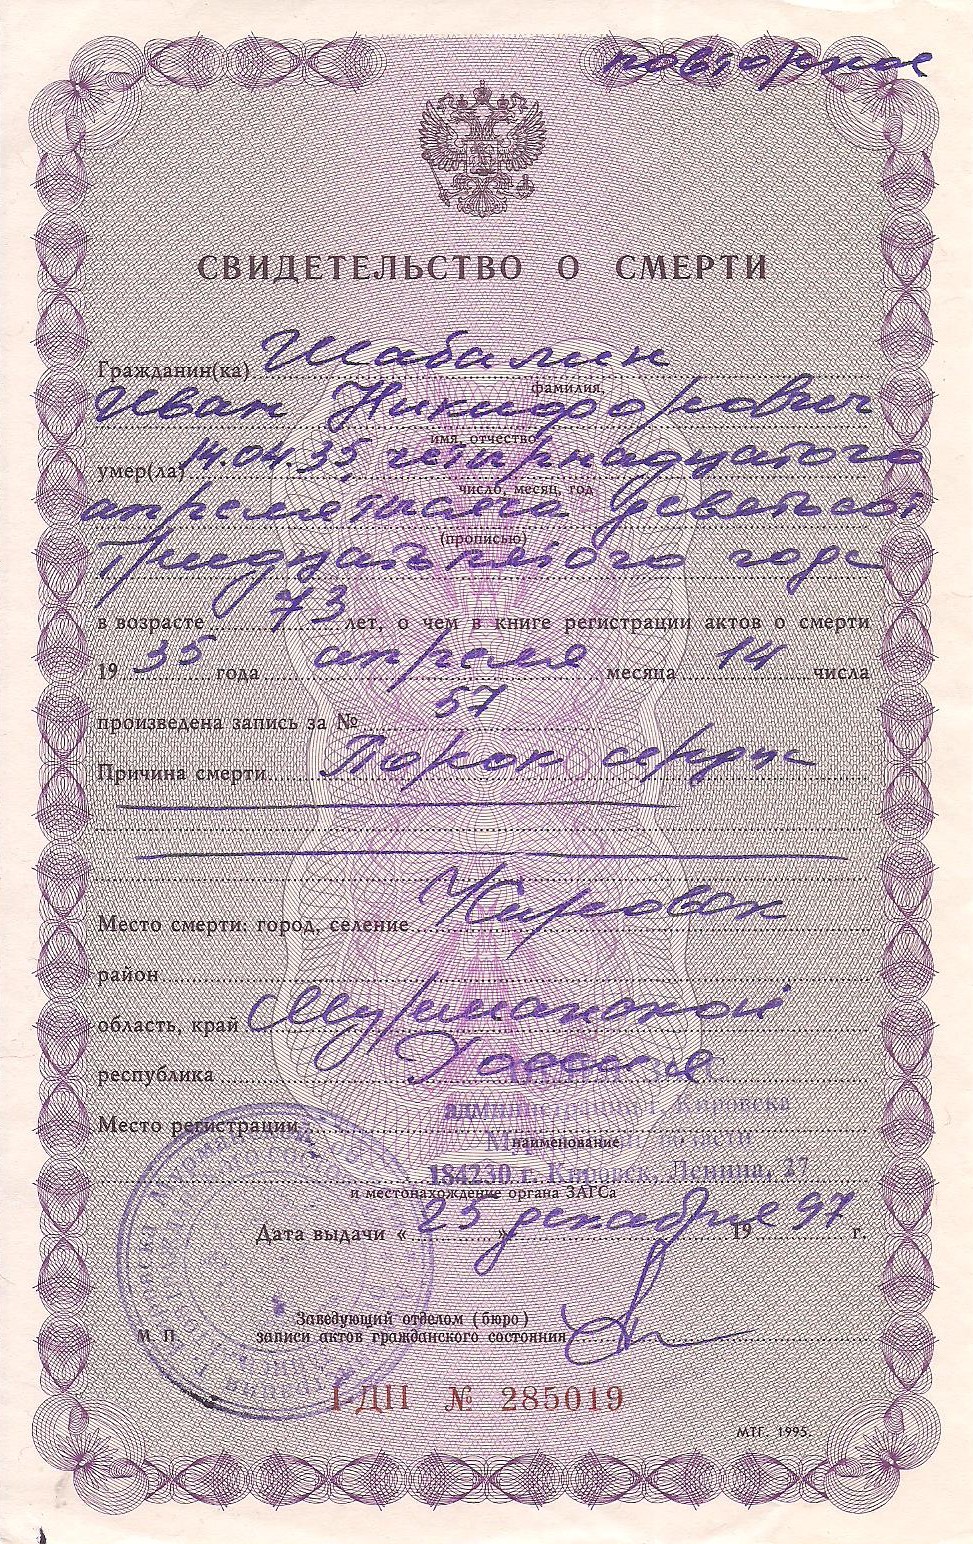 повторное
СВИДЕТЕЛЬСТВО О СМЕРТИ
Гражданин(ка) Шабалин
фамилия,
Иван Никифорович
имя, отчество
умер(ла) 14.04.35, четырнадцатого
число, месяц, год
апреля тысяча девятьсот
(прописью)
тридцать пятого года
в возрасте 73 лет, о чем в книге регистрации актов о смерти
19 35 года апреля месяца 14 числа
произведена запись за № 57
Причина смерти Порок сердца
Место смерти: город, селение Кировск
район
область, край Мурманской
республика Россия
администрации г. Кировска
Место регистрации
наименование
Мурманской области
184230 г. Кировск, Ленина, 27
и местонахождение органа ЗАГСа
Дата выдачи « 25 » декабря 19 97 г.
Заведующий отделом (бюро)
М. П. записи актов гражданского состояния
I-ДП № 285019
МПГ. 1995.